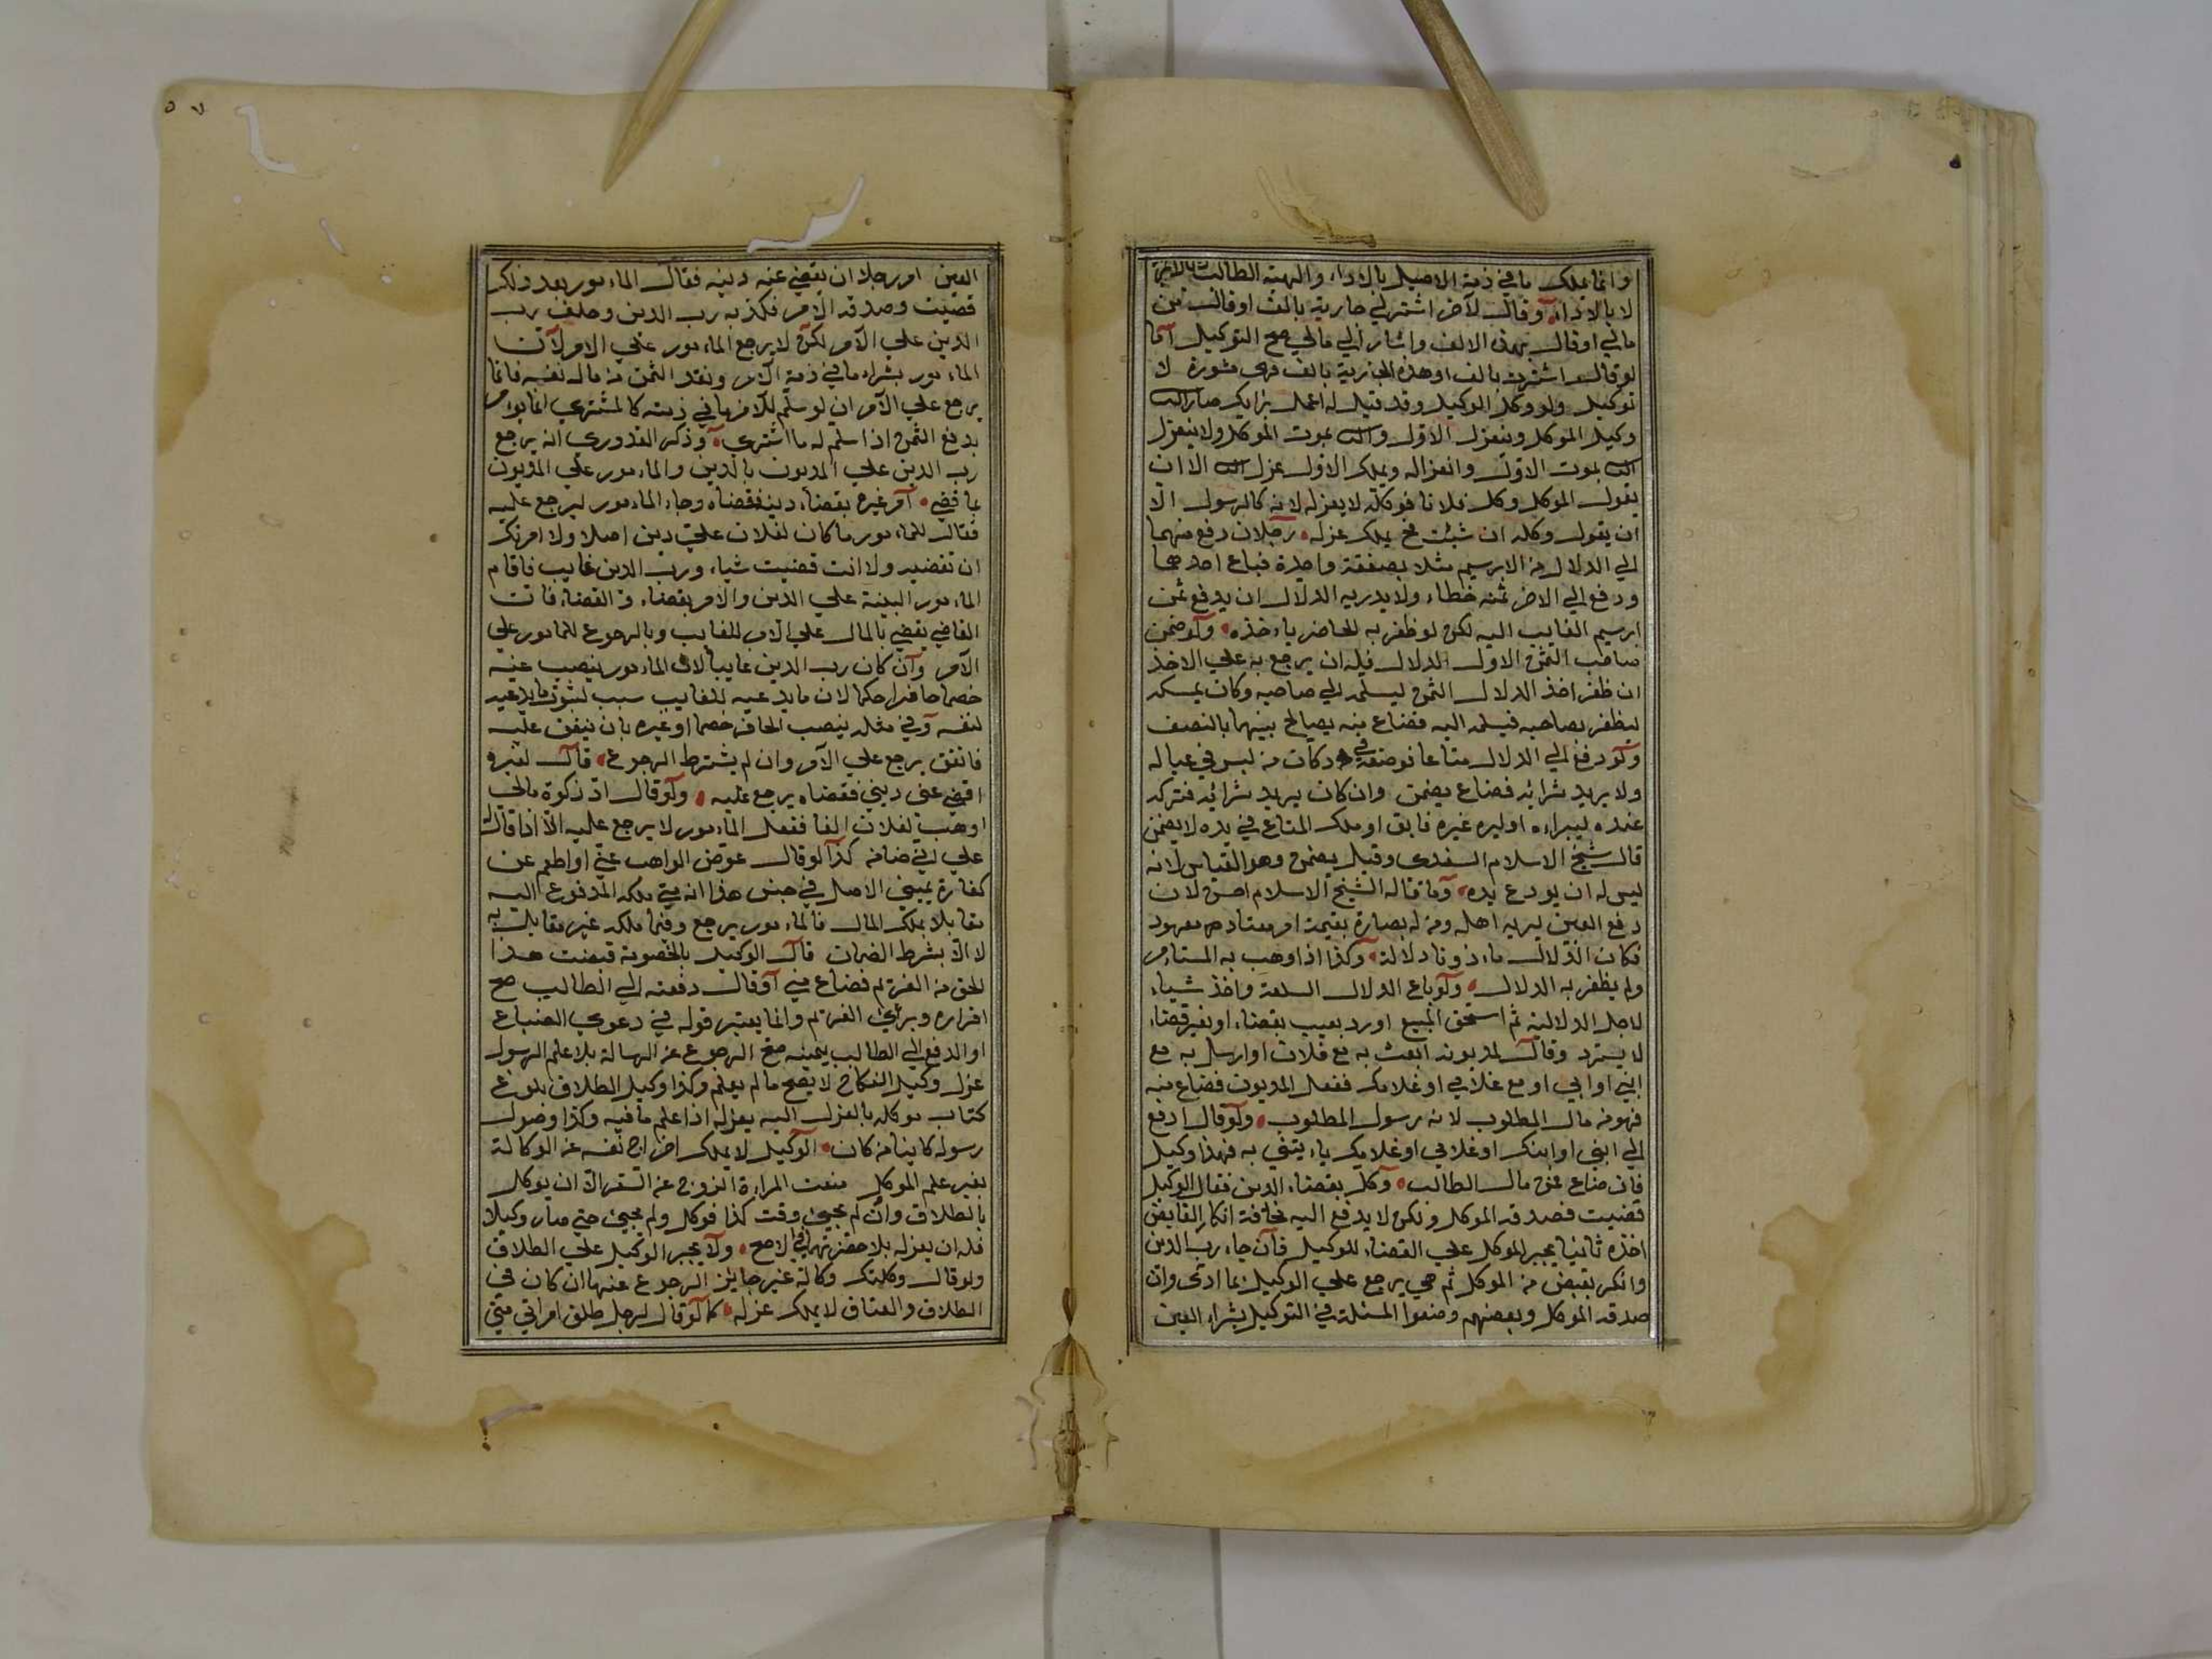 وانما يملك ما في ذمة الاصيل بالاداء والهبة الطالب
لا بالاداء وقال لآخر اشتر لي جارية بالف او قال من
مالي او قال بهذه الالف واشار الي مالي صح التوكيل اما
لو قال اشتر بالف او هذه الجارية بالف فهي مشورة لا
توكيل ولو وكل الوكيل وقد قيل له اعمل برايك صار
وكيل الموكل وينعزل الاول بموت الموكل ولا ينعزل
بموت الاول وانعزاله ويملك الاول عزل الا ان
يقول الموكل وكل فلانا فوكله لا يعزله لانه كالرسول الا
ان يقول وكله ان شئت فح يملك عزله رجلان دفع منهما
الي الدلال من الابريسم مثلا بصفقة واحدة فباع احدهما
ودفع الي الاخر ثمنه خطاء ولا يدريه الدلال ان يدفع ثمن
ابرسيم الغايب اليه لكن لو ظفر به الحاضر ياءخذه ولو ضمن
صاحب الثمن الاول الدلال فله ان يرجع به علي الاخذ
ان ظفر اخذ الدلال الثمن ليسلمه الي صاحبه وكان يمسكه
ليظفر بصاحبه فيسلمه اليه فضاع منه يصالح بينهما بالنصف
ولو دفع الي الدلال متاعا فوضعه في دكان من ليس في عياله
ولا يريد شرائه فضاع يضمن وان كان يريد شرائه فتركه
عنده ليراءه او ليره غيره فابق او هلك المتاع في يده لا يضمن
قال شيخ الاسلام السغدي وقيل يضمن وهو القياس لانه
ليس له ان يودع يده وما قاله الشيخ الاسلام احسن لان
دفع العين ليريه اهله ومن له بصارة بقيمة امر معتاد معهود
فكان الدلال ماءذونا دلالة وكذا اذا وهب به المستام
ولم يظفر به الدلال ولو باع الدلال السلعة واخذ شياء
لاجل الدلالية ثم استحق المبيع او رد بعيب بقضاء او بغير قضاء
لا يسترد وقال لمديونه ابعث به مع فلان او ارسل به مع
ابني او ابي او مع غلامي او غلامك ففعل المديون فضاع منه
فهو من مال المطلوب لانه رسول المطلوب ولو قال ادفع
الي ابني او ابنك او غلامي او غلامك ياءيتني به فهذا وكيل
فان ضاع فمن مال الطالب وكل بقضاء الدين فقال الوكيل
قضيت فصدقه الموكل ولكن لا يدفع اليه مخافة انكار القابض
اخذه ثانيا يجبر الموكل علي القضاء للوكيل فان جاء رب الدين
وانكر بقبض من الموكل ثم هي يرجع علي الوكيل بما ادي وان
صدقه الموكل وبعضهم وضعوا المسئلة في التوكيل بشراء العين
العين امر رجلا ان يقضي عنه دينه فقال الماءمور بعد ذلك
قضيت وصدقه الامر فكذبه رب الدين وحلف رب
الدين علي الآمر لكن لا يرجع الماءمور علي الامر لان
الماءمور بشراء ما في ذمة الآمر ونقد الثمن من مال نفسه فانما
يرجع علي الآمر ان لو سلم للآمر ما في ذمته كالمشتري انما يؤامر
بدفع الثمن اذا سلم له ما اشتري وذكر القدوري انه يرجع
رب الدين علي المديون بالدين والماءمور علي المديون
بما قضي امر غيره بقضاء دينه فقضاه وجاء الماءمور ليرجع عليه
فقال للماءمور ما كان لفلان علي دين اصلا ولا امرتك
ان تقضيه ولا انت قضيت شياء ورب الدين غايب فاقام
الماءمور البينة علي الدين والامر بقضاء والقضاء فان
القاضي يقضي بالمال علي الآمر للغايب وبالرجوع للمامور علي
الآمر وان كان رب الدين غايبا لان الماءمور ينصب عنه
خصما حاضرا حكما لان ما يدعيه للغايب سبب لثبوت ما يدعيه
لنفسه وفي مثله ينصب الحاضر خصما او غيره بان ينفق عليه
فانفق يرجع علي الآمر وان لم يشترط الرجوع قال لغيره
اقض عني ديني فقضاه يرجع عليه ولو قال اد زكوة مالي
او هب لفلان الفا ففعل الماءمور لا يرجع عليه الا اذا قال
علي اني ضامن كذا لو قال عوض الواهب عني او اطعم عن
كفارة يميني الاصل في جنس هذا انه متي ملكه المدفوع اليه
مقابلا بملك المال فالماءمور يرجع وفيما ملكه غير مقابل به
لا الا بشرط الضمان قال الوكيل بالخصومة قبضت هذا
الحق من الغريم فضاع مني او قال دفعته الي الطالب صح
اقراره وبرئ الغريم وانما يعتبر قوله في دعوي الضياع
او الدفع الي الطالب بيمينه صح الرجوع عن الرسالة بلا علم الرسول
عزل وكيل النكاح لا يصح ما لم يعلم وكذا وكيل الطلاق بلوغ
كتاب موكله بالعزل اليه يعزله اذا علم ما فيه وكذا وصول
رسوله كاينا من كان الوكيل لا يملك اخراج نفسه عن الوكالة
بغير علم الموكل منعت المراءة الزوج عن السفر الا ان يوكل
بالطلاق وان لم يجيئ وقت كذا فوكل ولم يجيئ حتي صار وكيلا
فله ان يعزله بلا حضرتها في الاصح ولا يجبر الوكيل علي الطلاق
ولو قال وكلتك وكالة غير جايز الرجوع عنها ان كان في
الطلاق والعتاق لا يملك عزله كما لو قال لرجل طلق امراتي متي